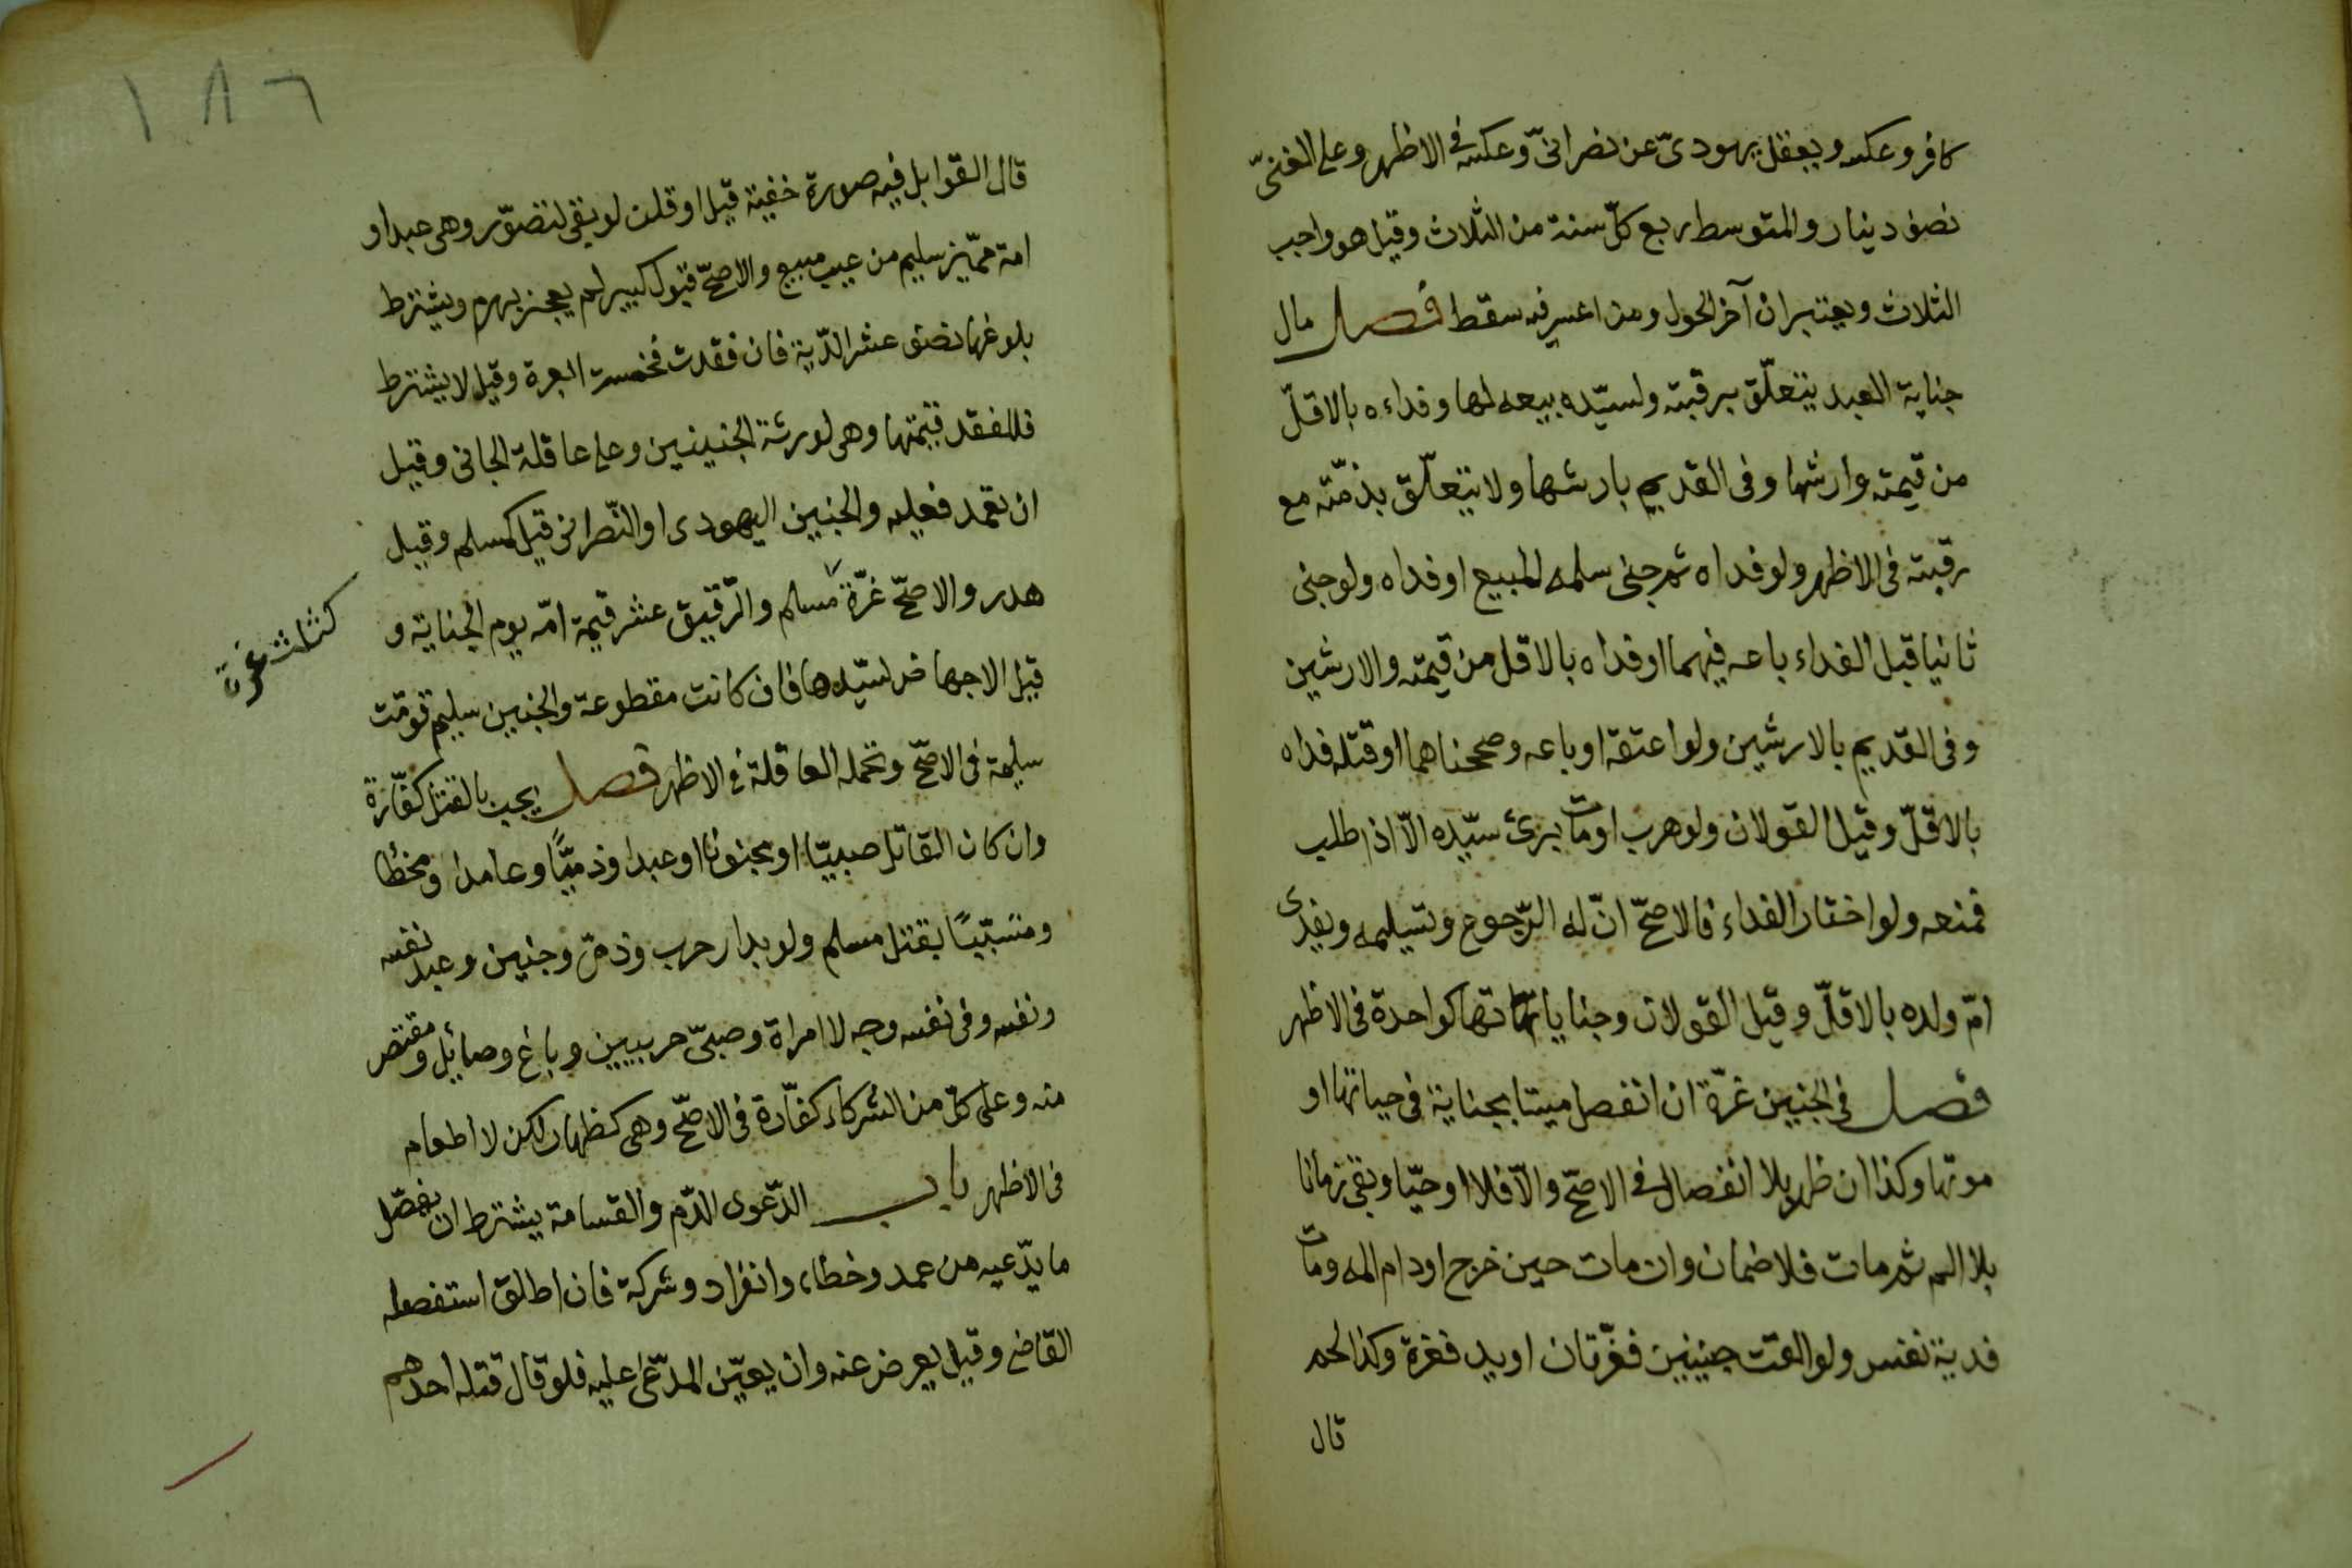 كافر وعكسه ويعقل يهودىّ عن نصرانىّ وعكسه فى الاظهر وعلى الغنىّ
نصف دينار والمتوسط ربع كلّ سنة من الثلاث وقيل هو واجب
الثلاث ويعتبران آخر الحول ومن اعسر فيه سقط فصل مال
جناية العبد يتعلّق برقبته ولسيّده بيعه لها وفداءه بالاقلّ
من قيمته وارشها وفى القديم بارشها ولا يتعلّق بذمّته مع
رقبته فى الاظهر ولو فداه ثم جنى سلمه للمبيع او فداه ولو جنى
ثانيا قبل الفداء باعه فيهما او فداه بالاقل من قيمته والارشين
وفى القديم بالارشين ولو اعتقه او باعه وصححناهما او قتله فداه
بالاقلّ وقيل القولان ولو هرب او مات برئ سيّده الّا اذا طلب
فمنعه ولو اختار الفداء فالاصحّ انّ له الرّجوع وتسليمه ويفدى
امّ ولده بالاقلّ وقيل القولان وجناياتها كواحدة فى الاظهر
فصل فى الجنين غرّة ان انفصل ميتا بجناية فى حياتها او
موتها وكذا ان ظهر بلا انفصال فى الاصحّ والّا فلا او حيّا وبقى زمانا
بلا الم ثم مات فلا ضمان وان مات حين خرج او دام المه ومات
فدية نفس ولو القت جنينين فغرّتان او يد فغرة وكذا لحم
قال
١٨٦
قال القوابل فيه صورة خفية قيل او قلن لو بقى لتصوّر وهى عبد او
امة مميّز سليم من عيب مبيع والاصحّ قبول كبير لم يعجز بهرم ويشترط
بلوغها نصف عشر الدّية فان فقدت فخمسة ابعرة وقيل لا يشترط
فللفقد قيمتها وهى لورثة الجنينين وعلى عاقلة الجانى وقيل
ان تعمد فعليه والجنين اليهودى او النّصرانى قيل كمسلم وقيل
هدر والاصحّ غرّة مسلم والرّقيق عشر قيمة امّه يوم الجناية و
كثلث غرة
قيل الاجهاض لسيّدها فان كانت مقطوعة والجنين سليم قوّمت
سليمة فى الاصحّ وتحمله العاقلة فى الاظهر فصل يجب بالقتل كفّارة
وان كان القاتل صبيّا او مجنونا او عبدا وذميّا وعامدا ومخطا
ومتسبّبًا بقتل مسلم ولو بدار حرب وذمىّ وجنين وعبد نفسه
ونفسه وفى نفسه وجه لا امراة وصبىّ حربيين وباغ وصايل ومقتص
منه وعلى كلّ من الشركاء كفّارة فى الاصحّ وهى كظهار لكن لا اطعام
فى الاظهر باب الدّعوى الدّم والقسامة يشترط ان يفصّل
ما يدّعيه من عمد وخطاء وانفراد وشركة فان اطلق استفصله
القاضى وقيل يعرض عنه وان يعيّن المدّعى عليه فلو قال قتله احدهم